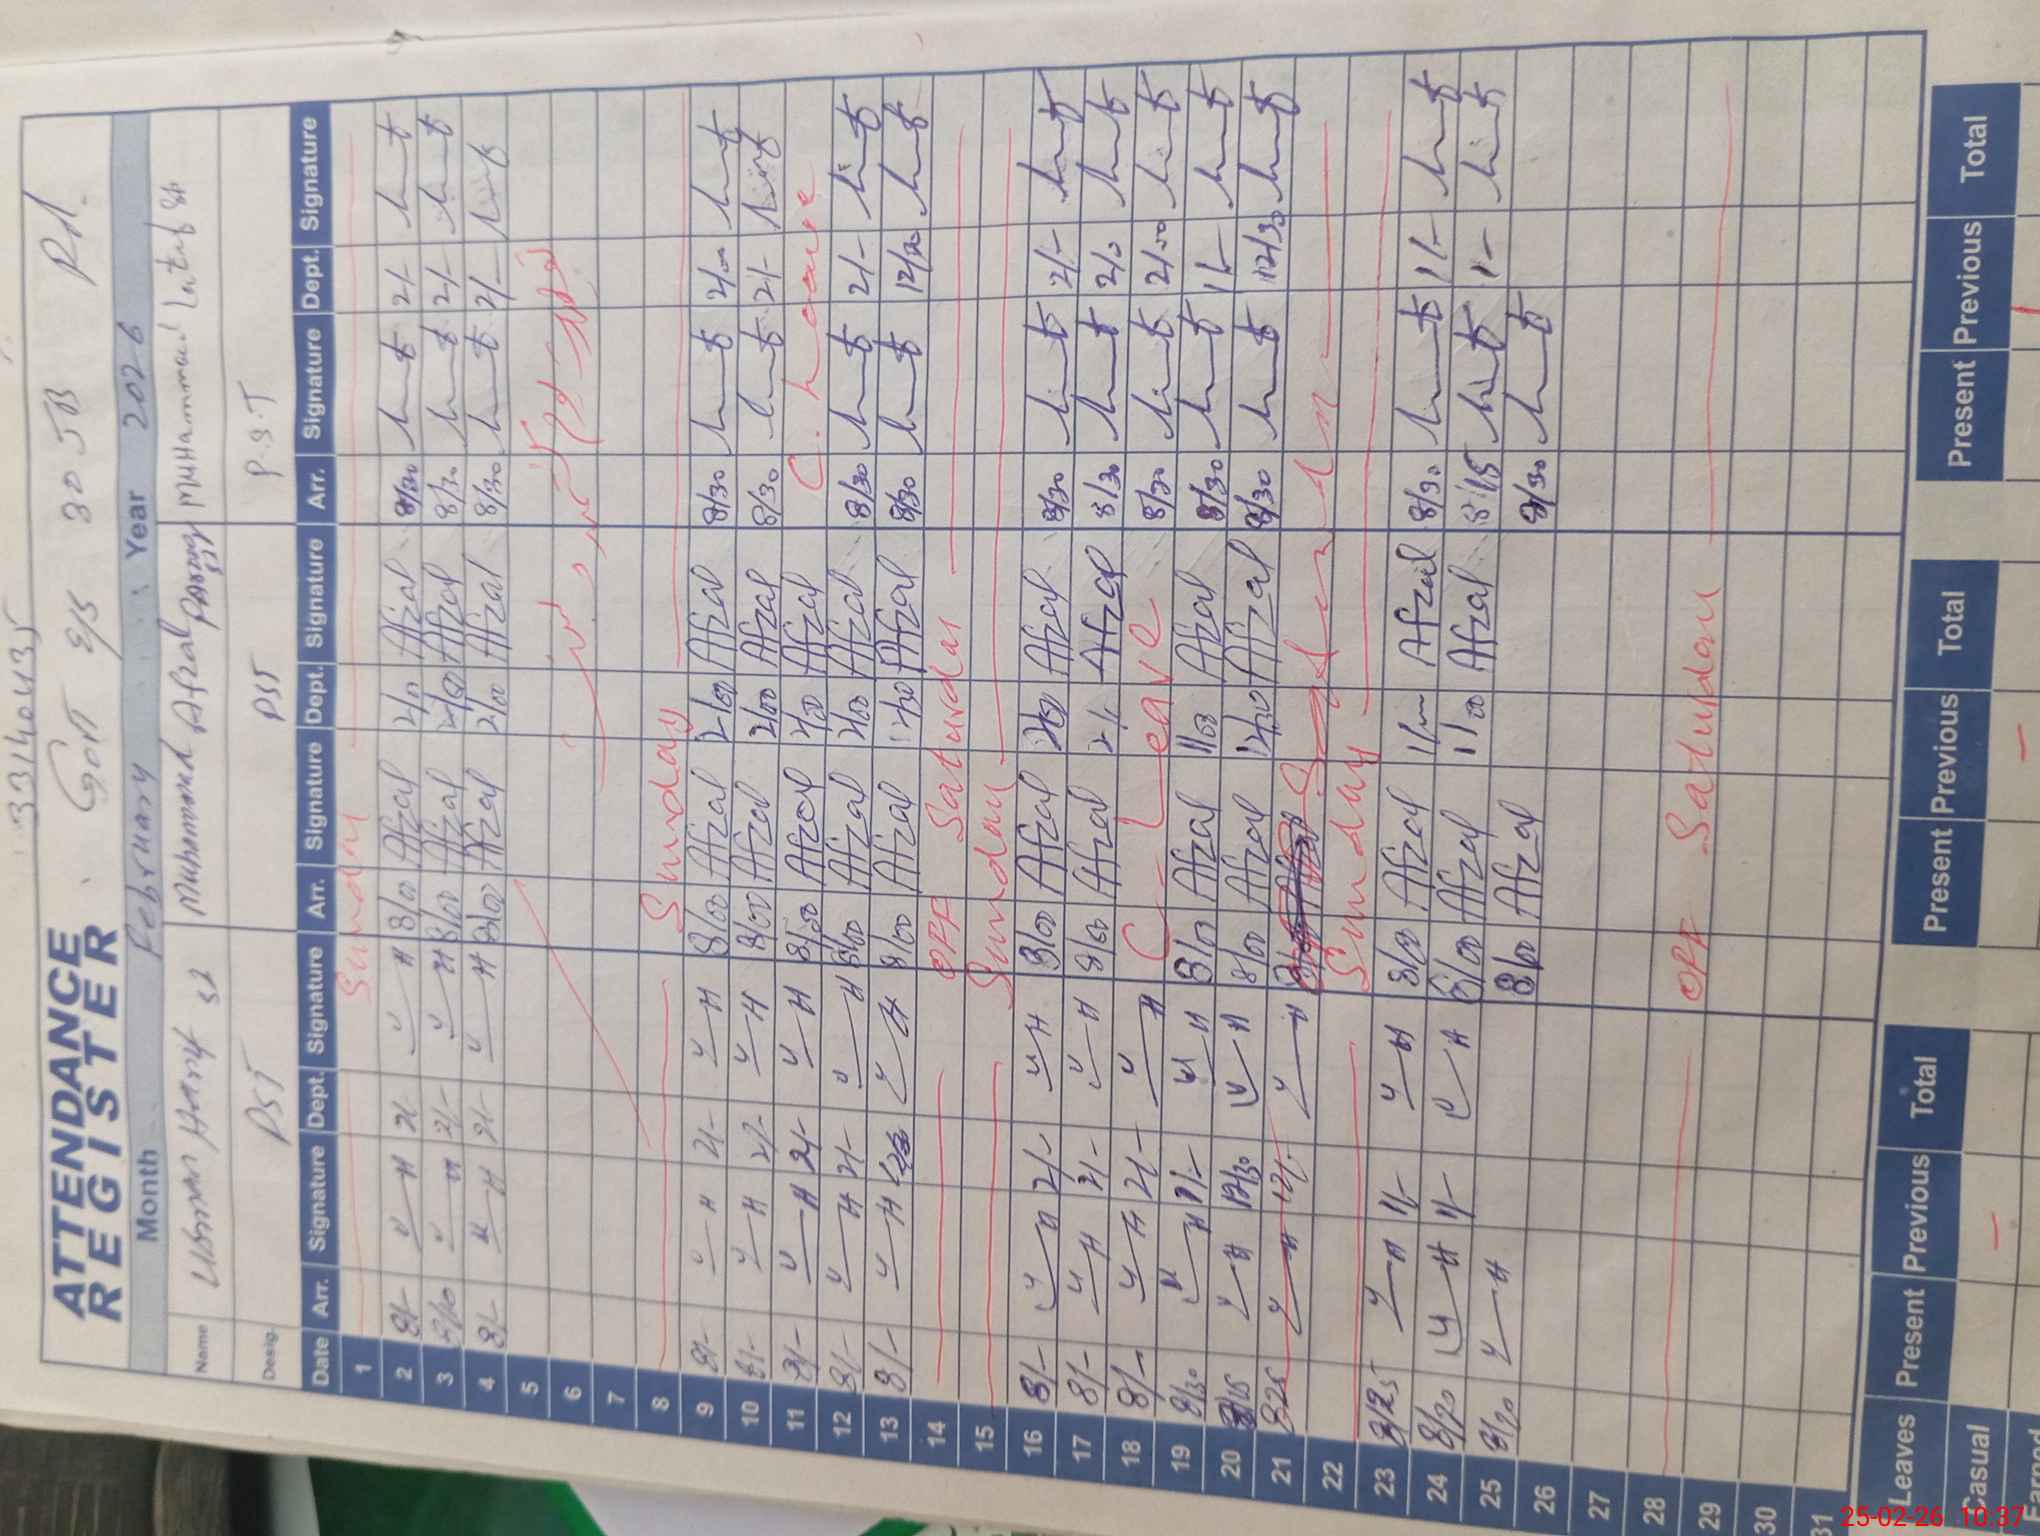 33140435
ATTENDANCE REGISTER
GOVT E/S 30 JB
Month February Year 2026
Name Usman Hanif Muhammad Afzal Muhammad Latif
Desig. PST PST P.S.T
Date Arr. Signature Dept. Signature Arr. Signature Dept. Signature Arr. Signature Dept. Signature
1 Sunday
2 8/- 2/- 8/00 Afzal 2/00 Afzal 8/30 2/-
3 8/00 2/- 8/00 Afzal 2/00 Afzal 8/30 2/-
4 8/- 2/- 8/00 Afzal 2/00 Afzal 8/30 2/-
5
6
7
8 Sunday
9 8/- 2/- 8/00 Afzal 2/00 Afzal 8/30 2/00
10 8/- 2/- 8/00 Afzal 2/00 Afzal 8/30 2/-
11 8/- 2/- 8/00 Afzal 2/00 Afzal C. Leave
12 8/- 2/- 8/00 Afzal 2/00 Afzal 8/30 2/-
13 8/- 8/00 Afzal 12/30 Afzal 8/30
14 OFF Saturday
15 Sunday
16 8/- 2/- 8/00 Afzal 2/00 Afzal 8/30 2/-
17 8/- 2/- 8/00 Afzal 2/- Afzal 8/30 2/0
18 8/- 2/- C-Leave 8/30 2/00
19 8/30 1/- 8/00 Afzal 1/00 Afzal 8/30 1/-
20 8/15 12/30 8/00 Afzal 12/30 Afzal 8/30 12/30
21 825 12/-
22 Sunday
23 8/25 1/- 8/00 Afzal 1/00 Afzal 8/30 1/-
24 8/20 1/- 8/00 Afzal 1/00 Afzal 8:15 1-
25 8/20 8/00 Afzal 8/30
26
27
28 OFF Saturday
29
30
31
Leaves Present Previous Total Present Previous Total Present Previous Total
Casual
25-02-26 10:37